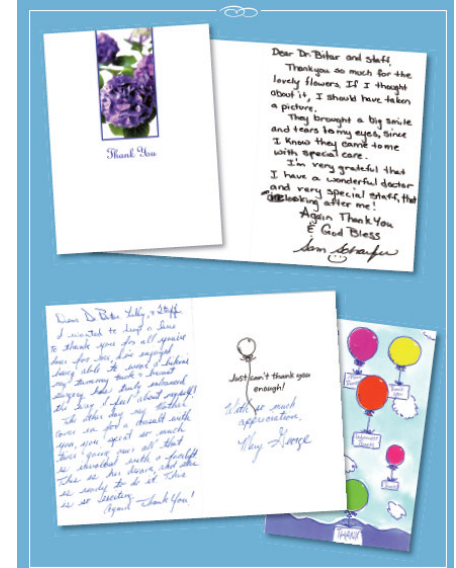 Thank You
Dear Dr. Bitar and staff,
Thankyou so much for the
lovely flowers. If I thought
about it, I should have taken
a picture.
They brought a big smile
and tears to my eyes, since
I know they came to me
with special care.
I'm very grateful that
I have a wonderful doctor
and very special staff, that
looking after me!
Again Thank You
& God Bless
Dear Dr. Bitar, & Staff,
I wanted to a line
to thank you for all you've
done for me. I've enjoyed
being able to wear a
my tummy tuck & breast
surgery have truly enhanced
the way I feel about myself!
The other day my mother
came in for a consult with
you, you spent so much
time going over all that
is involved with a facelift
This is her and she
is ready to do it This
is so exciting.
Again Thank You!
Just can't thank you
enough!
With so much
appreciation,
Mary
Thank
you
THANX